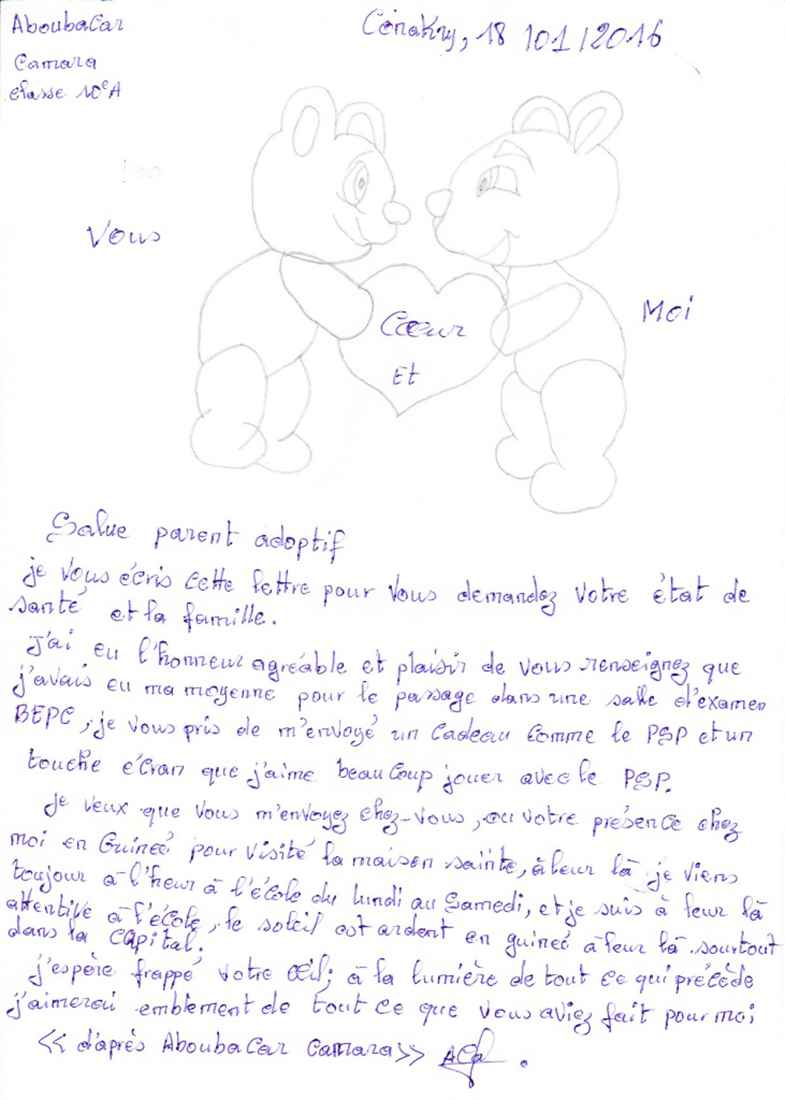 AboubaCar
Camara
classe 10e A
Cónakry, 18/01/2016
Vous
Cœur
Et
Moi
Salue parent adoptif
je vous écris cette lettre pour vous demandez votre état de
santé et la famille.
J'ai eu l'honneur agréable et plaisir de vous renseignez que
j'avais eu ma moyenne pour le passage dans une salle d'examen
BEPC, je vous pris de m'envoyé un cadeau comme le PSP et un
touche écran que j'aime beaucoup jouer avec le PSP.
je veux que vous m'envoyez chez-vous, ou votre présence chez
moi en Guineé pour visité la maison sainte, à leur là je viens
toujour à l'heur à l'école du lundi au Samedi, et je suis à leur là
attentive à l'école, le soleil est ardent en guineé à leur là sourtout
dans la capital.
j'espère frappé votre œil; à la lumière de tout ce qui précède
j'aimerai emblement de tout ce que vous aviez fait pour moi
<< d'après AboubaCar Camara>>